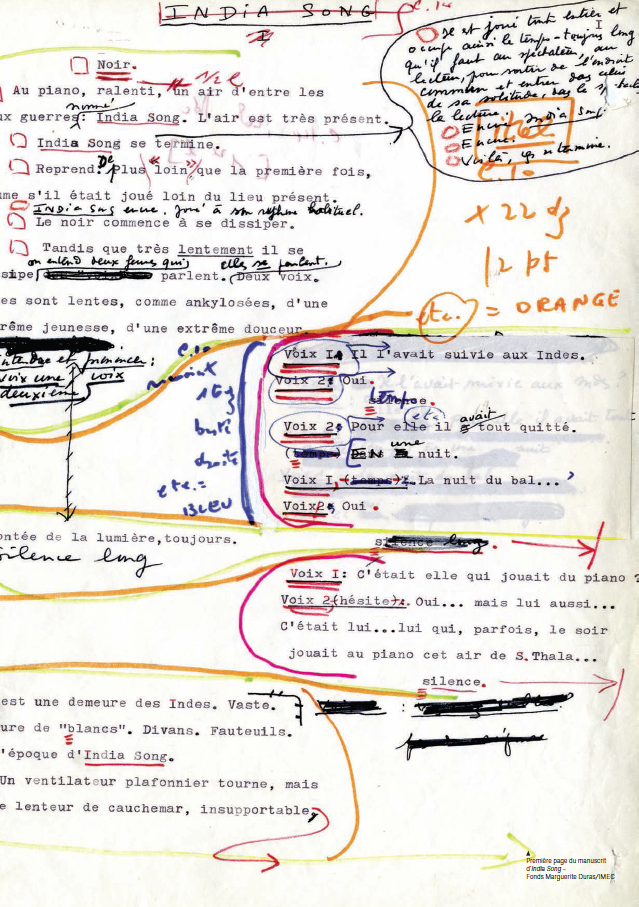 INDIA SONG
I
Il est joué tout entier et
occupe ainsi le temps - toujours long
qu'il faut au spectateur, au
lecteur, pour sortir de l'endroit
commun et entrer dans celui
de sa solitude, dans le
la lecture.
Encore. India Song
Encore.
Voilà, ça se termine.
Noir.
Au piano, ralenti, un air d'entre les
nommé
ux guerres: India Song. L'air est très présent.
India Song se termine.
Reprend. De "Plus loin" que la première fois,
me s'il était joué loin du lieu présent.
INDIA Song encore. Joué à son rythme habituel.
Le noir commence à se dissiper.
Tandis que très lentement il se
on entend deux femmes qui elles se parlent.
sipe, parlent. Deux voix.
es sont lentes, comme ankylosées, d'une
rême jeunesse, d'une extrême douceur.
ital
c. 10
x 22
12 pt
etc. = ORANGE
voix une voix
deuxième
c. 10
etc. =
BLEU
Voix I: Il l'avait suivie aux Indes.
Voix 2: Oui.
temps
silence.
etc. avait
Voix 2: Pour elle il a tout quitté.
une
(temps) nuit.
Voix I, (temps): La nuit du bal...
Voix 2: Oui.
ontée de la lumière, toujours.
silence long
silence long.
Voix I: C'était elle qui jouait du piano ?
Voix 2 (hésite): Oui... mais lui aussi...
C'était lui...lui qui, parfois, le soir
jouait au piano cet air de S.Thala...
silence.
est une demeure des Indes. Vaste.
ure de "blancs". Divans. Fauteuils.
'époque d'India Song.
Un ventilateur plafonnier tourne, mais
e lenteur de cauchemar, insupportable,
Première page du manuscrit
d'India Song –
Fonds Marguerite Duras/IMEC